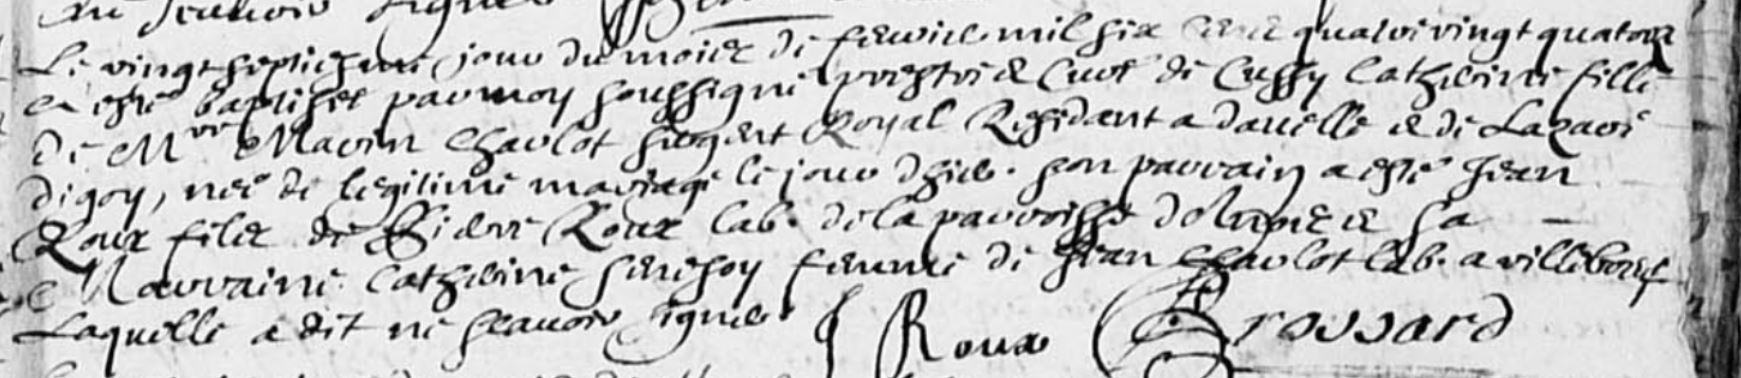 signer
Le vingt septiesme jour du mois de fevrier mil six cent quatre vingt quatorze
a esté baptisee par moy soussigné prestre & curé de Cussy Catherine fille
de Mre Marin Charlot sergent Royal Residant a & de Lazare
digoy, née de legitime mariage le jour d'hier. son parrain a esté Jean
Roux filz de Pierre Roux lab. de la parroisse & sa
Marraine Catherine femme de Jean Charlot lab. a
Laquelle a dit ne scavoir signer
J Roux Brossard